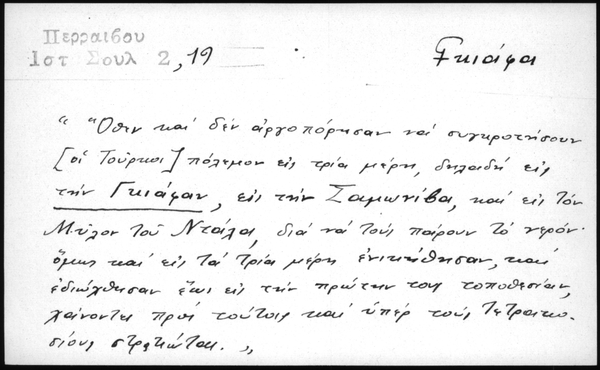 Περραιβου
Ιστ Σουλ 2,19
Γκιάφα
“ Ὅθεν καί δέν ἀργοπόρησαν νά συγκροτήσουν
[οἱ Τοῦρκοι] πόλεμον εἰς τρία μέρη, δηλαδή εἰς
τήν Γκιάφαν, εἰς τήν Σαμωνίβα, καί εἰς τόν
Μύλον τοῦ Ντάλα, διά νά τούς πάρουν τό νερόν·
ὅμως καί εἰς τά τρία μέρη ἐνικήθησαν, καί
ἐδιώχθησαν ἕως εἰς τήν πρώτην τους τοποθεσίαν,
χάνοντες πρός τούτοις καί ὑπέρ τούς τετρακο-
σίους στρατιώτας. „